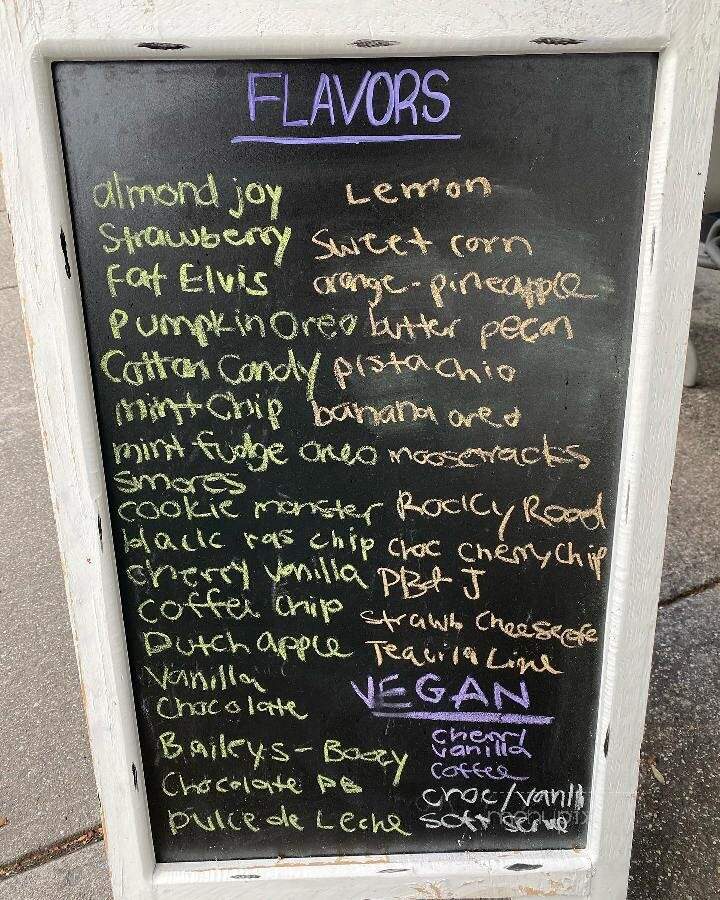 FLAVORS
almond joy
Strawberry
Fat Elvis
Pumpkin Oreo
Cotton Candy
mint Chip
mint fudge oreo
Smores
cookie monster
black ras chip
cherry vanilla
coffee chip
Dutch apple
Vanilla
Chocolate
Baileys - Boozy
Chocolate PB
Dulce de Leche
Lemon
Sweet corn
orange-pineapple
butter pecan
pistachio
banana oreo
moosetracks
Rocky Road
choc cherry chip
PB+J
strawb cheesecake
Tequila Lime
VEGAN
cherry
vanilla
coffee
choc/vanll
soft serve